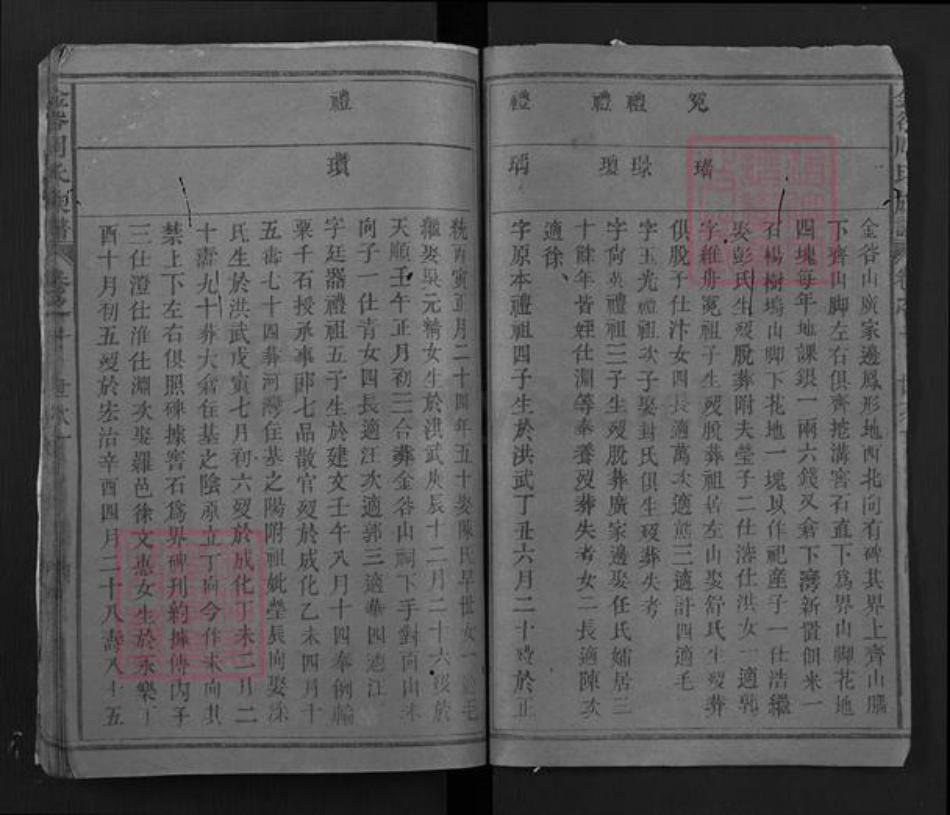 冕 禮 禮 禮
璠 琼 瓊 瑀
金谷山廣家邊鳳形地西北向有碑其界上齊山頂
下齊山脚左右俱齊挖溝窖石直下爲界山脚花地
四塊每年地課銀一兩六錢又倉下灣新置佃米一
石楊樹塢山脚下花地一塊以作祀產子一仕浩繼
娶彭氏生歿脫葬附夫塋子二仕濬仕洪女一適郭
字維舟冕祖子生歿脫葬祖居左山娶舒氏生歿葬
俱脫子仕汴女四長適萬次適熊三適計四適毛
字玉光禮祖次子娶封氏俱生歿葬失考
字向英禮祖三子生歿脫葬廣家邊娶任氏孀居三
十餘年皆姪仕淵等奉養歿葬失考女二長適陳次
適徐
字原本禮祖四子生於洪武丁丑六月二十歿於正
禮
瓚
統丙寅正月二十四年五十娶陳氏早世女一適毛
繼娶吳元精女生於洪武庚辰十二月二十六歿於
天順壬午正月初三合葬金谷山祠下手對面山未
向子一仕青女四長適汪次適郭三適華四適江
字廷器禮祖五子生於建文壬午八月十四奉例輸
粟千石授承事郎七品散官歿於成化乙未四月十
五壽七十四葬河灣住基之陽附祖妣塋辰向娶涂
氏生於洪武戊寅七月初六歿於成化丁未二月二
十壽九十葬大倉住基之陰原立丁向今作未向其
禁上下左右俱照碑據窖石爲界碑刊約據傳內子
三仕澄仕淮仕淵次娶羅邑徐文惠女生於永樂丁
酉十月初五歿於宏治辛酉四月二十八壽八十五